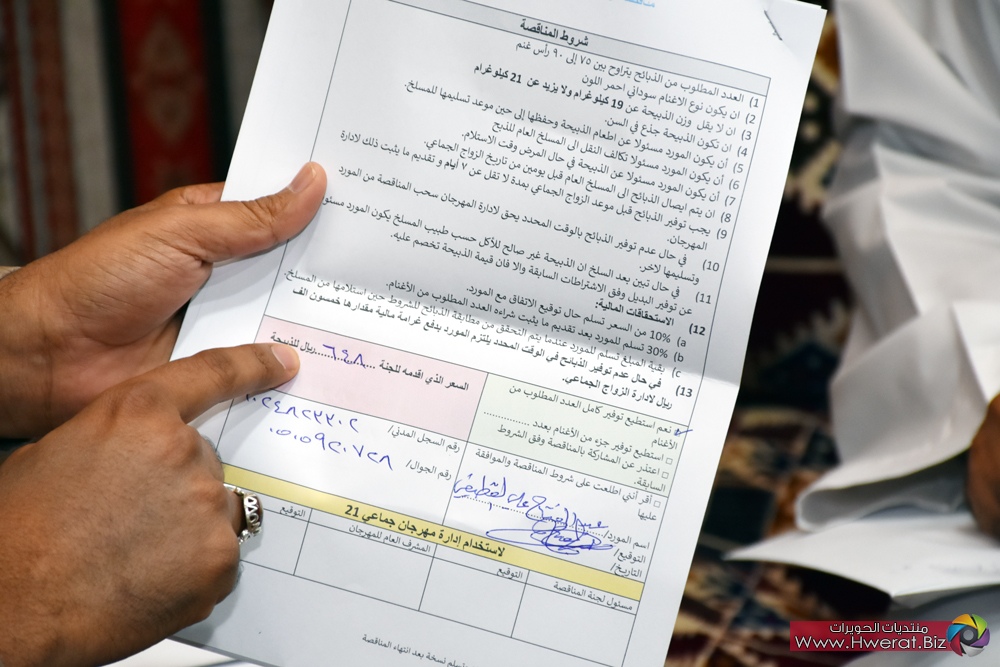 شروط المناقصة
1) العدد المطلوب من الذبائح يتراوح بين ٧٥ إلى ٩٠ رأس غنم
2) ان يكون نوع الاغنام سوداني احمر اللون
3) ان لا يقل وزن الذبيحة عن 19 كيلوغرام ولا يزيد عن 21 كيلوغرام
4) ان تكون الذبيحة جذع في السن.
5) أن يكون المورد مسئولا عن اطعام الذبيحة وحفظها إلى حين موعد تسليمها للمسلخ.
6) أن يكون المورد مسئولا تكالف النقل الى المسلخ العام للذبح
7) أن يكون المورد مسئولا عن الذبيحة في حال المرض وقت الاستلام.
8) ان يتم ايصال الذبائح الى المسلخ العام قبل يومين من تاريخ الزواج الجماعي.
9) يجب توفير الذبائح قبل موعد الزواج الجماعي بمدة لا تقل عن ٧ أيام و تقديم ما يثبت ذلك لادارة
المهرجان.
10) في حال عدم توفير الذبائح بالوقت المحدد يحق لادارة المهرجان سحب المناقصة من المورد
وتسليمها لاخر.
11) في حال تبين بعد السلخ ان الذبيحة غير صالح للأكل حسب طبيب المسلخ يكون المورد مسئولا
عن توفير البديل وفق الاشتراطات السابقة والا فان قيمة الذبيحة تخصم عليه.
12) الاستحقاقات المالية:
a) 10% من السعر تسلم حال توقيع الاتفاق مع المورد.
b) 30% تسلم للمورد بعد تقديم ما يثبت شراءه العدد المطلوب من الأغنام.
c) بقية المبلغ تسلم للمورد عندما يتم التحقق من مطابقة الذبائح للشروط حين استلامها من المسلخ.
13) في حال عدم توفير الذبائح في الوقت المحدد يلتزم المورد بدفع غرامة مالية مقدارها خمسون الف
ريال لادارة الزواج الجماعي.
نعم استطيع توفير كامل العدد المطلوب من
الأغنام
استطيع توفير جزء من الأغنام بعدد ..........
اعتذر عن المشاركة بالمناقصة وفق الشروط
السابقة.
السعر الذي اقدمه للجنة ...٦٤٨... ريال للذبيحة
أقر أنني اطلعت على شروط المناقصة والموافقة
عليها
رقم السجل المدني/
رقم الجوال/ ٠٥٠٥٩٢٠٧٢٨
اسم المورد/
التوقيع/
التاريخ/
لاستخدام إدارة مهرجان جماعي 21
مسئول لجنة المناقصة
التوقيع
المشرف العام للمهرجان
التوقيع
تسلم نسخة بعد انتهاء المناقصة
منتديات الحويرات
Www.Hwerat.Biz